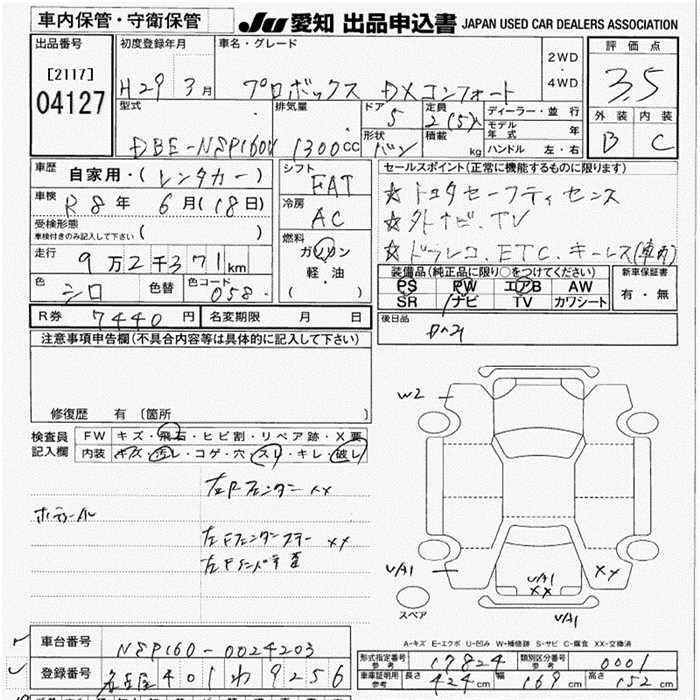 車内保管・守衛保管
JU 愛知 出品申込書 JAPAN USED CAR DEALERS ASSOCIATION
出品番号
[2117]
04127
初度登録年月
H29 3月
車名・グレード
プロボックス DXコンフォート
2WD
4WD
評価点
3.5
外装 内装
B C
型式
DBE-NSP160V
排気量
1300cc
ドア
5
形状
バン
定員
2(5)人
積載
kg
ディーラー・並行
モデル年式 年
ハンドル 左・右
車歴
自家用・(レンタカー)
車検
R8年 6月(18日)
受検形態
車検付きのみ記入して下さい ( )
走行
9万2千371km
色
シロ
色替
色コード
058
シフト
FAT
冷房
AC
燃料
ガソリン
軽・油
( )
セールスポイント(正常に機能するものに限ります)
☆トヨタセーフティセンス
☆外ナビ.TV
☆ドラレコ.ETC.キーレス(車両)
装備品(純正品に限り○をつけてください)
PS PW エアB AW
SR ナビ TV カワシート
新車保証書
有・無
R券 7440円
名変期限 月 日
後日品
注意事項申告欄(不具合内容等は具体的に記入して下さい)
修復歴 有〔箇所 〕
検査員記入欄
FW キズ・飛石・ヒビ割・リペア跡・X要
内装 キズ・汚レ・コゲ・穴・スレ・キレ・破レ
左Fフェンダー XX
左Fフェンダーライナー XX
W2
VA1
VA1
XX
XX
VA1
スペア
A-キズ E-エクボ U-凹み W-補修跡 S-サビ C-腐食 XX-交換済
車台番号
NSP160-0024203
登録番号
名古屋 401 わ 9256
形式指定番号 参考 17824
類別区分番号 参考 0001
車庫証明用 参考 長さ 424cm 幅 169cm 高さ 152cm